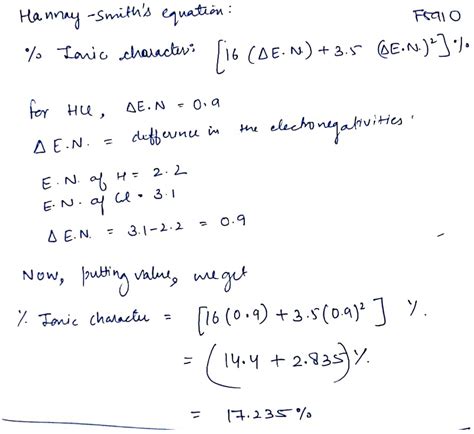 Hannay-Smith's equation:
F5910
% Ionic character: [16 (ΔE.N) + 3.5 (ΔE.N.)²] %
for HCl, ΔE.N = 0.9
ΔE.N. = difference in the electronegativities.
E.N. of H = 2.2
E.N. of Cl = 3.1
ΔE.N. = 3.1-2.2 = 0.9
Now, putting value, we get
% Ionic character = [16(0.9) + 3.5(0.9)²] %.
= (14.4 + 2.835)%
= 17.235%